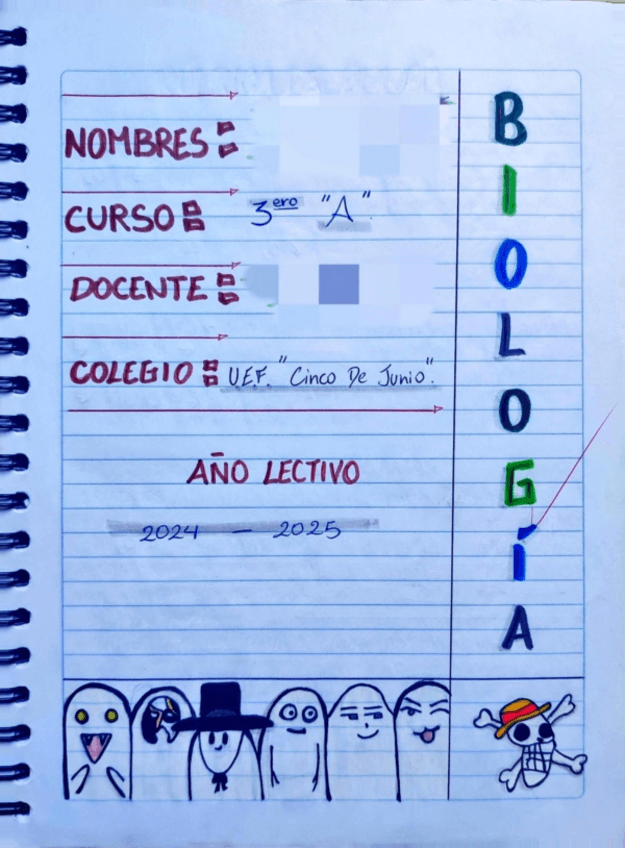 NOMBRES:
CURSO: 3ero "A".
DOCENTE:
COLEGIO: U.E.F. "Cinco De Junio".
AÑO LECTIVO
2024 - 2025
BIOLOGÍA